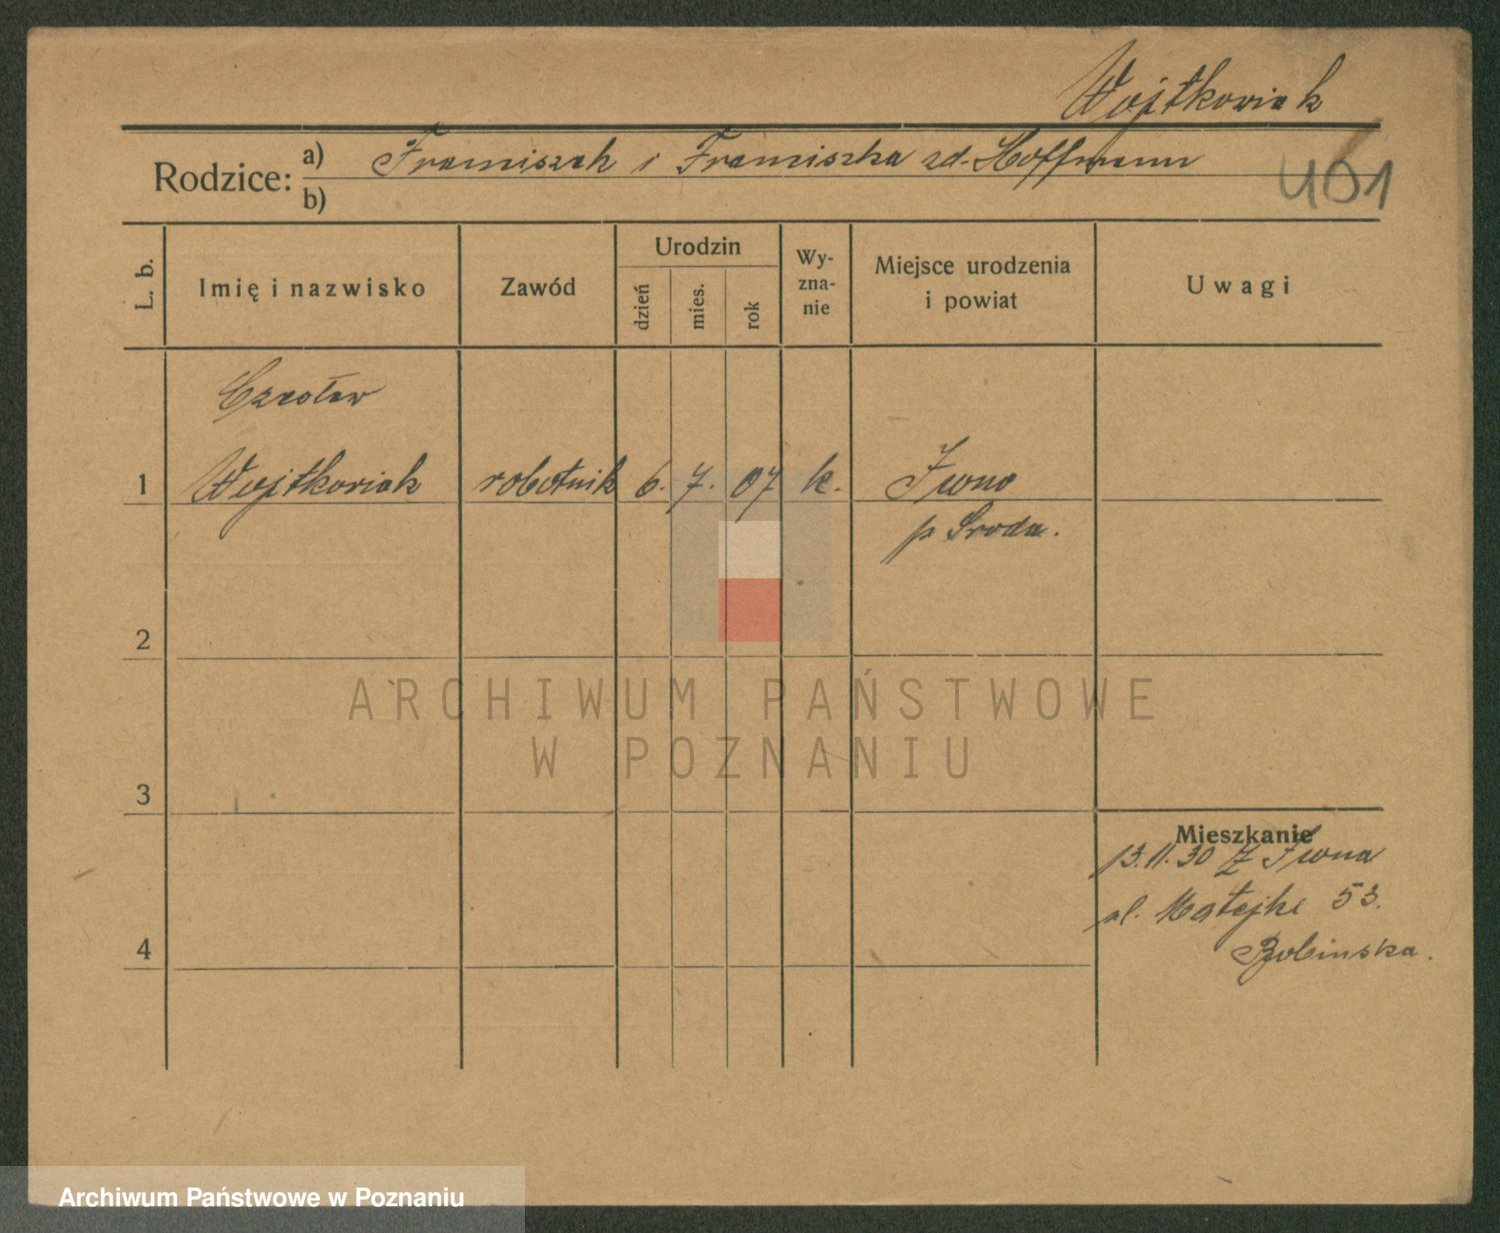 Wojtkowiak
Rodzice: a) Franciszek i Franciszka zd. Hoffmann
b)
461
L. b.
Imię i nazwisko
Zawód
Urodzin
dzień
mies.
rok
Wy-
zna-
nie
Miejsce urodzenia
i powiat
Uwagi
Czesław
1 Wojtkowiak robotnik 6. 7. 07 k. Iwno
p Środa.
2
ARCHIWUM PAŃSTWOWE
W POZNANIU
3
Mieszkanie
13.11.30 Z Iwna
ul. Matejki 53.
4
Archiwum Państwowe w Poznaniu